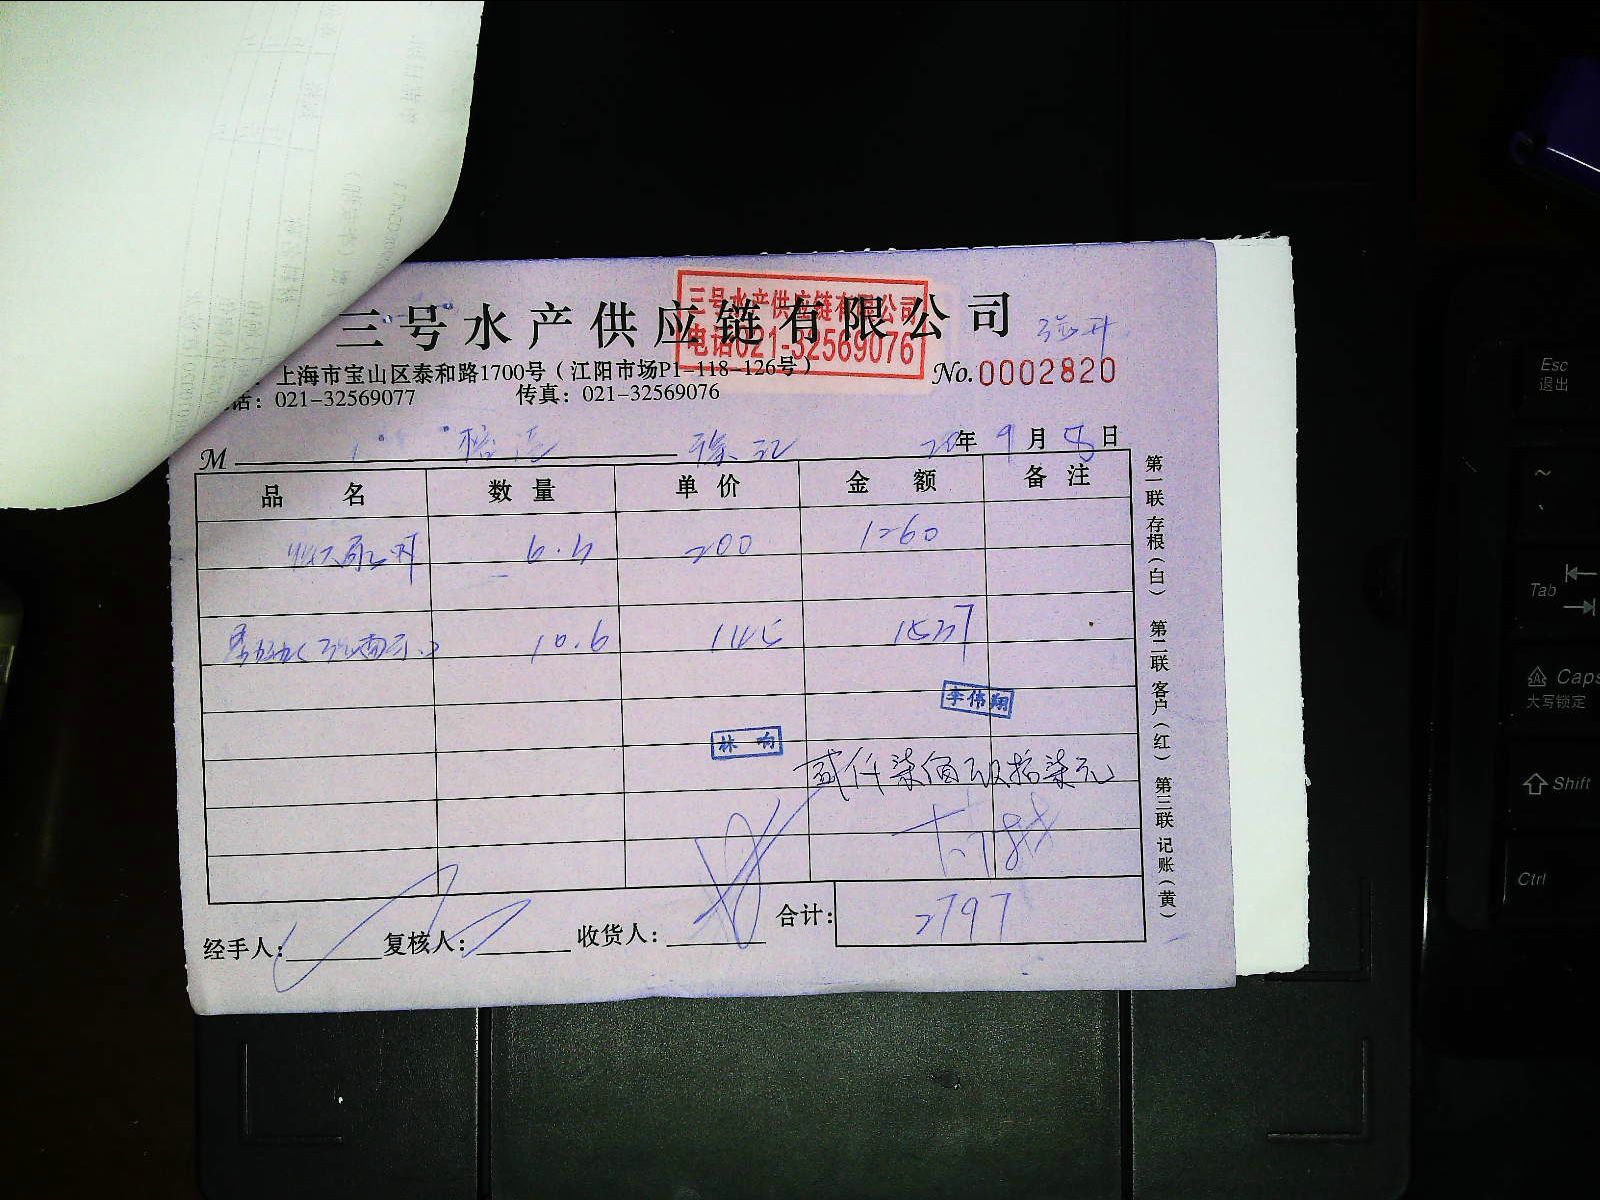 三号水产供应链有限公司
三号水产供应链有限公司
电话021-32569076
上海市宝山区泰和路1700号（江阳市场P1-118-126号）
No.0002820
话：021-32569077 传真：021-32569076
M 20年9月 日
品名 数量 单价 金额 备注
200 1260
10.6 145 1537
李伟翔
林响
贰仟柒佰玖拾柒元
经手人： 复核人： 收货人： 合计：2797
第一联 存根（白） 第二联 客户（红） 第三联 记账（黄）
Esc
退出
~
Tab
Caps
大写锁定
Shift
Ctrl